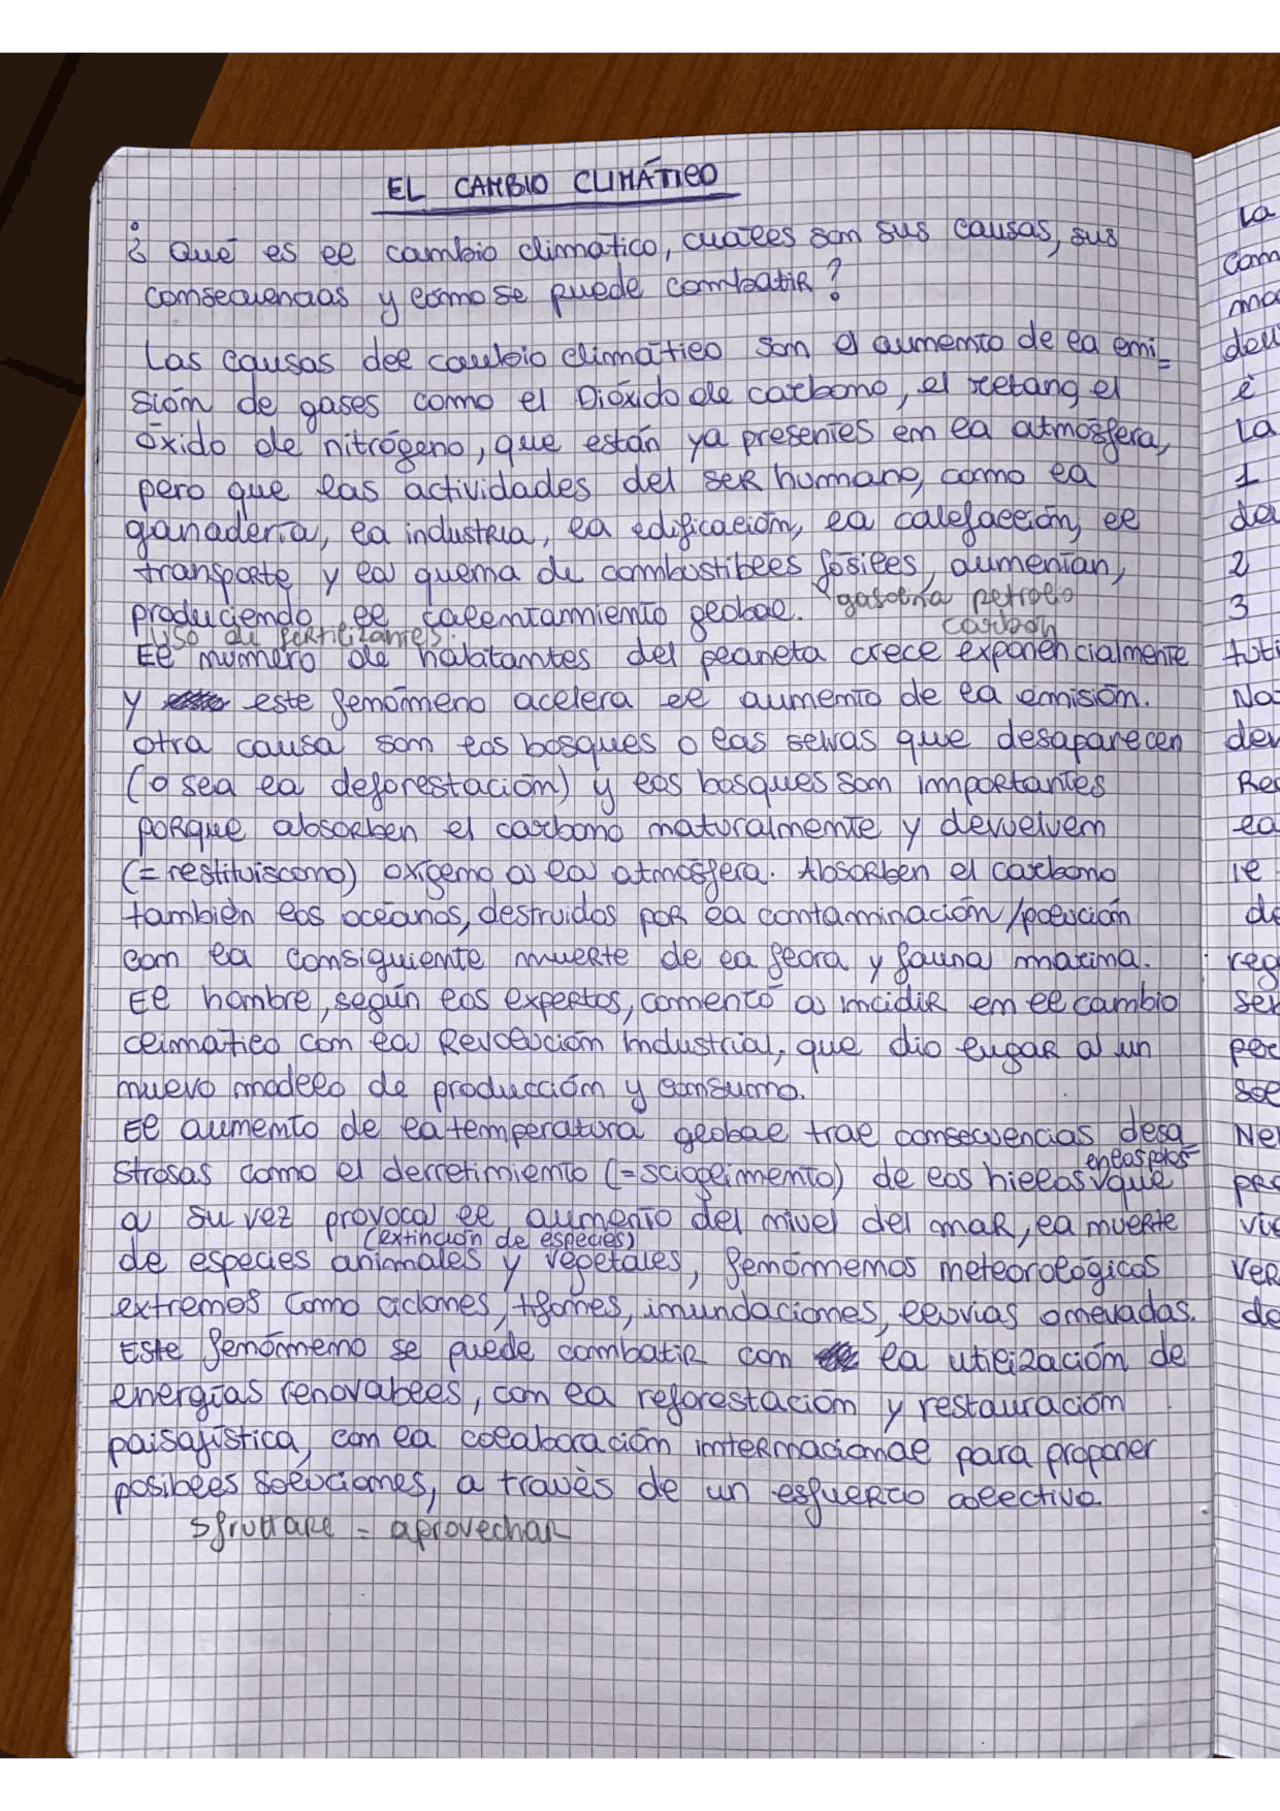 EL CAMBIO CLIMÁTICO
¿Qué es el cambio climatico, cuales son sus causas, sus
consecuencias y cómo se puede combatir?
Las causas del cambio climático son el aumento de la emi=
sión de gases como el Dióxido de carbono, el metano y el
óxido de nitrógeno, que están ya presentes en la atmósfera,
pero que las actividades del ser humano, como la
ganadería, la industria, la edificación, la calefacción, el
transporte y la quema de combustibles fósiles, aumentan,
produciendo el calentamiento global. gasolina petrolio
carbon
uso de fertilizantes.
El número de habitantes del planeta crece exponencialmente
y este fenómeno acelera el aumento de la emisión.
otra causa son los bosques o las selvas que desaparecen
(o sea la deforestación) y los bosques son importantes
porque absorben el carbono naturalmente y devuelven
(= restituiscono) oxígeno a la atmósfera. Absorben el carbono
también los océanos, destruidos por la contaminación/polución
con la consiguiente muerte de la flora y fauna marina.
El hombre, según los expertos, comentó a incidir en el cambio
climático con la Revolución Industrial, que dio lugar a un
nuevo modelo de producción y consumo.
El aumento de la temperatura global trae consecuencias desa
strosas como el derretimiento (= scioglimento) de los hielos en los polos que
a su vez provoca el aumento del nivel del mar, la muerte
(extinción de especies)
de especies animales y vegetales, fenómenos meteorológicos
extremos como ciclones, tifones, inundaciones, lluvias
Este fenómeno se puede combatir con la utilización de
energías renovables, con la reforestación y restauración
paisajística, con la colaboración internacional para proponer
posibles soluciones, a través de un esfuerzo colectivo.
sfruttare = aprovechar
La
com
1
2
3